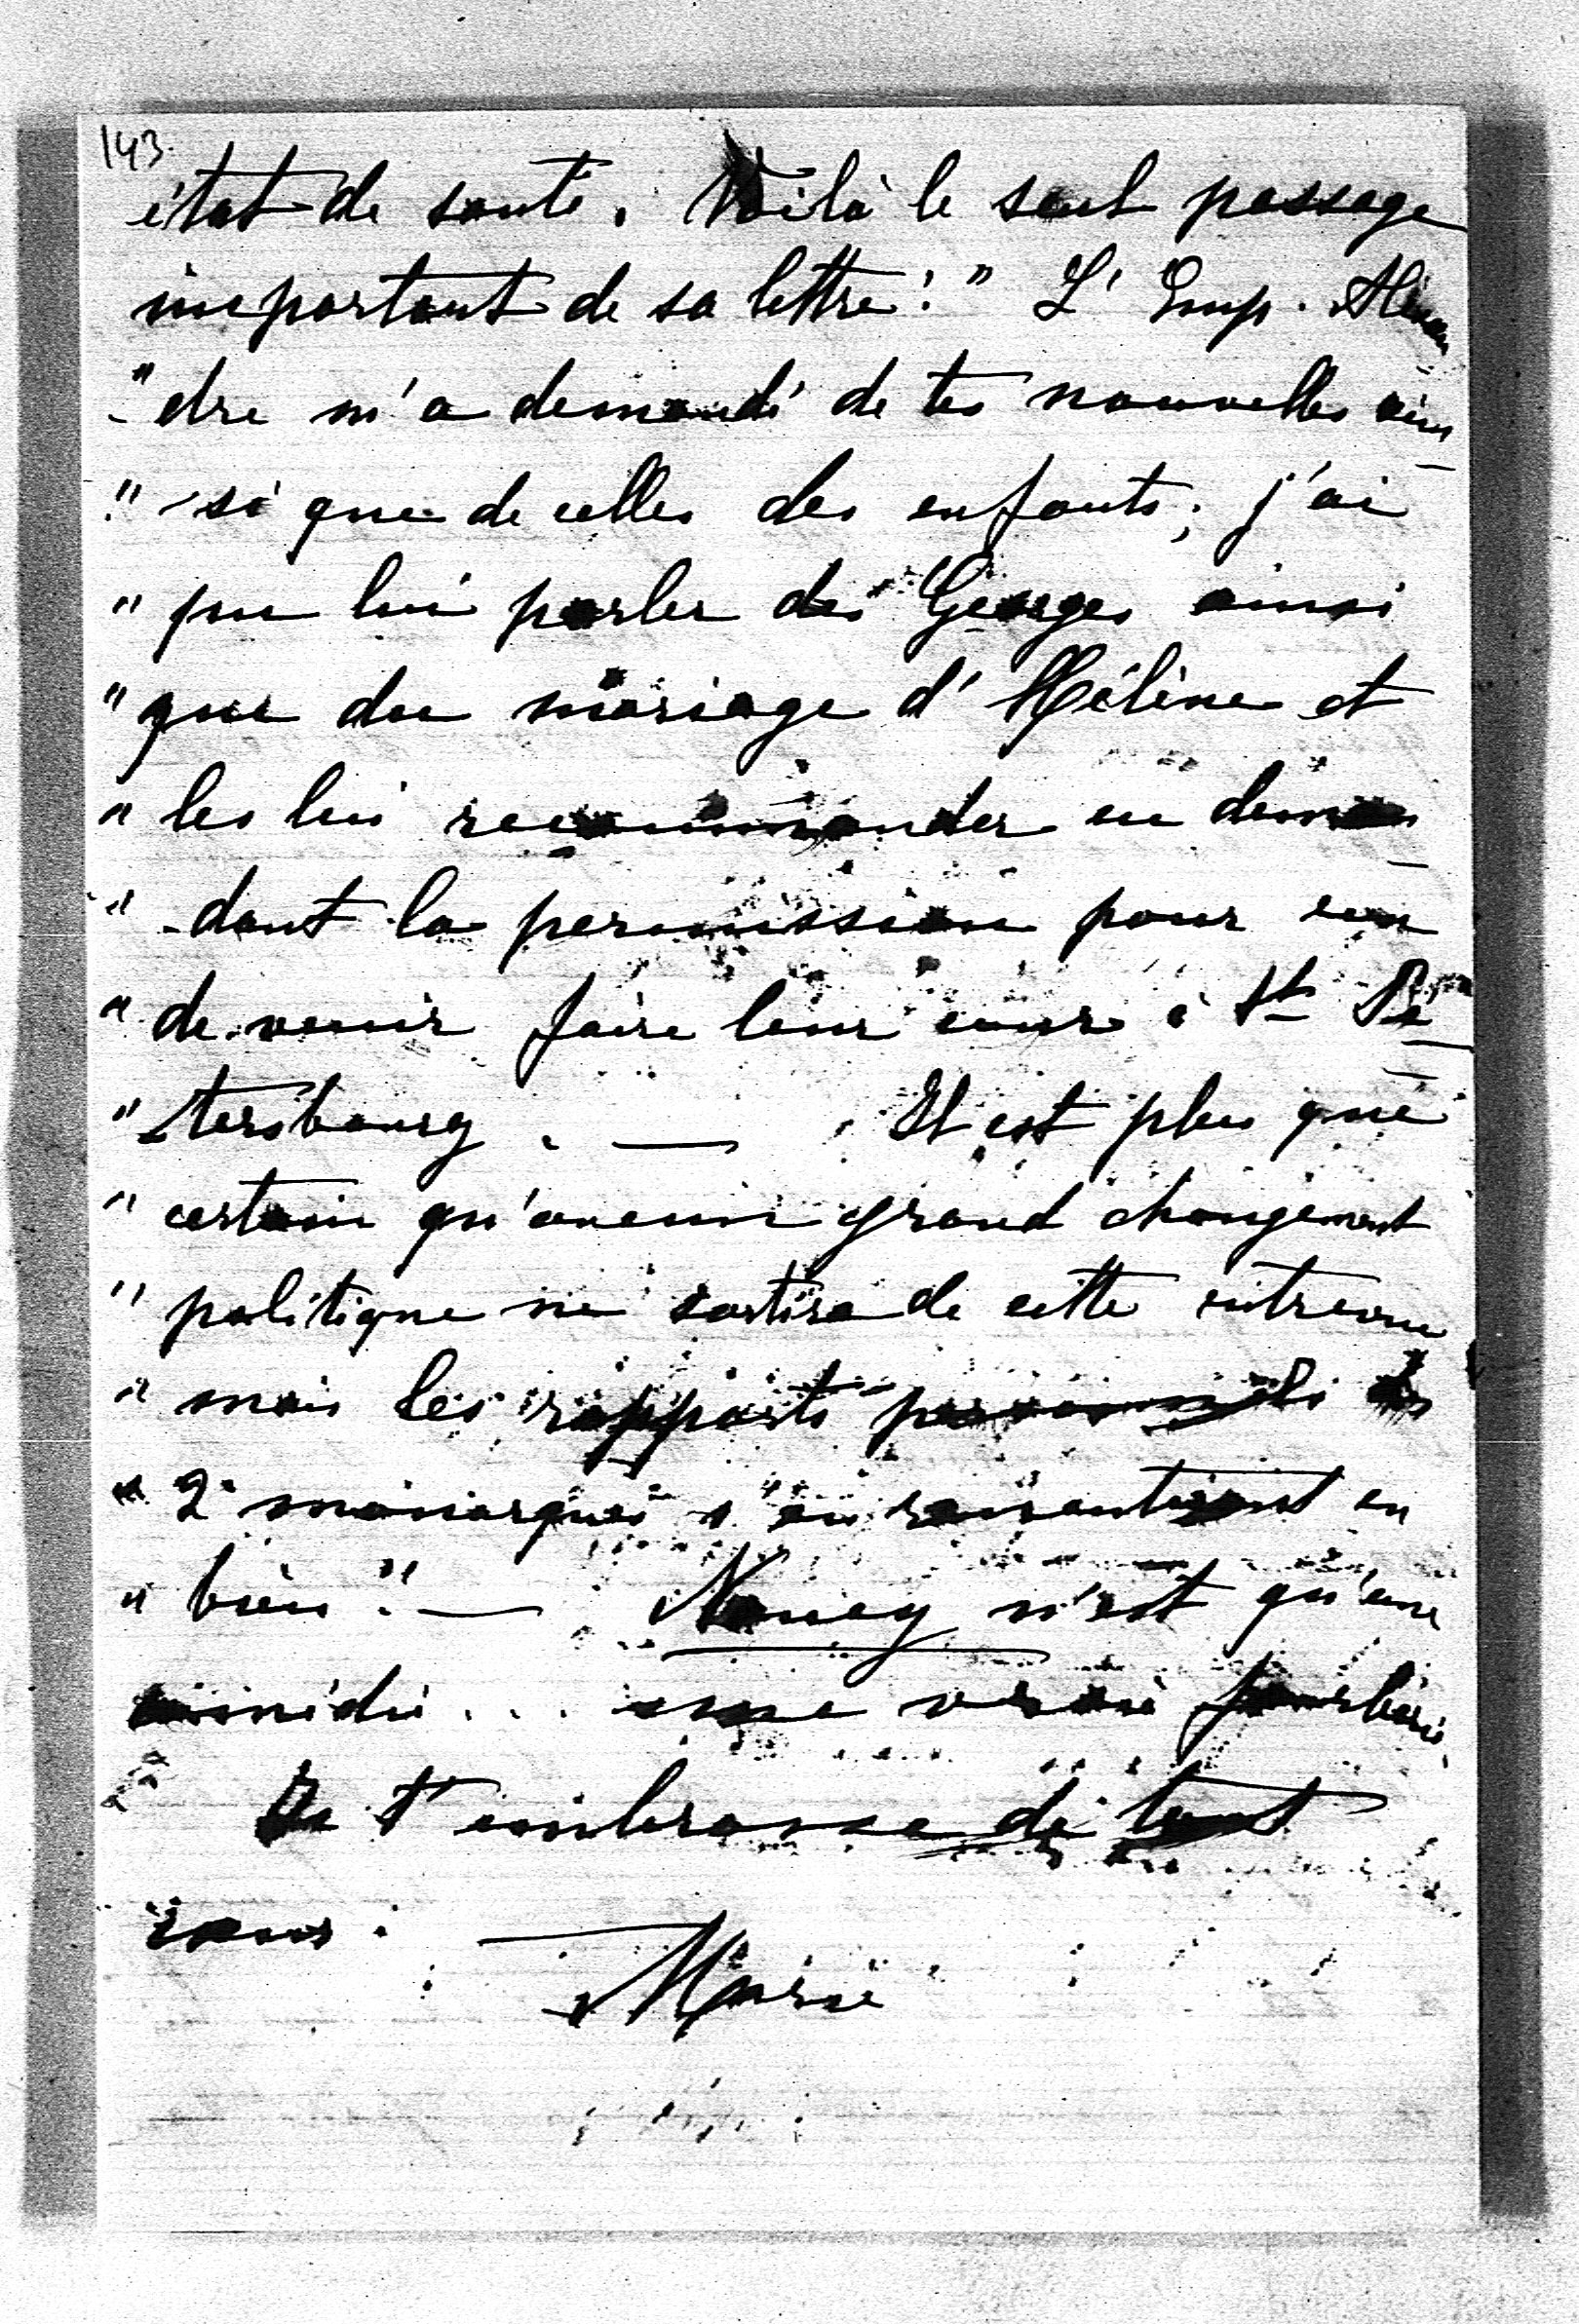 143.
état de santé. Voilà le seul passage
important de sa lettre: " L' Emp. Alexan
" dre m'a demandé de tes nouvelles ain
" -si que de celles des enfants; j'ai
" pu lui parler des Georges ainsi
" que du mariage d'Hélène et
" les lui recommander en deman
" -dant la permission pour eux
" de venir faire leur cour à St Pé
" tersbourg. — Il est plus que
" certain qu'aucun grand changement
" politique ne sortira de cette entrevue
" mais les rapports personnels des
" 2 monarques s'en ressentiront en
" bien". — Nancy n'est qu'une
comédie... une vraie fourberie.
Je t'embrasse de tout
cœur. —
Marie